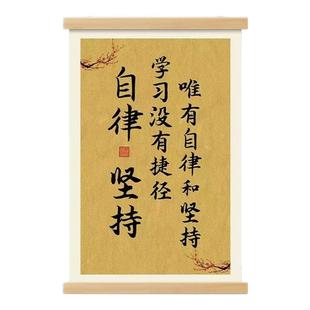 唯有自律和坚持
学习没有捷径
自律 坚持